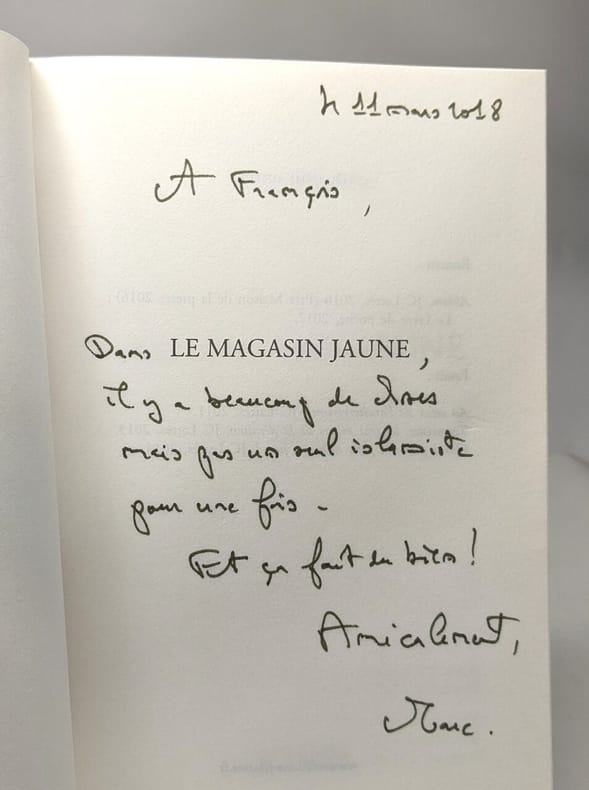 Le 11 mars 2018
A François,
Dans LE MAGASIN JAUNE,
il y a beaucoup de choses
mais pas un seul islamiste
pour une fois -
Et ça fait du bien !
Amicalement,
Marc.